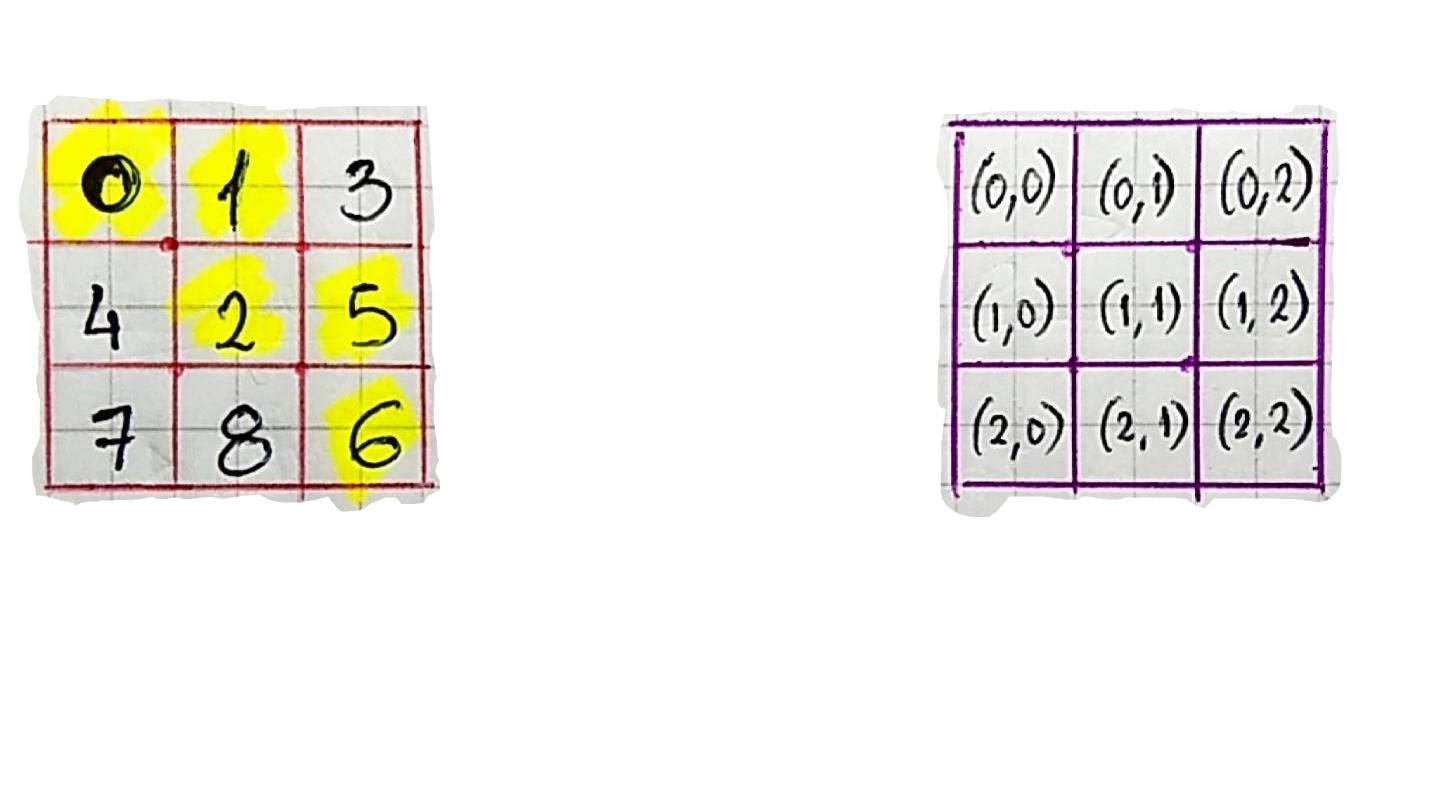 0 1 3
4 2 5
7 8 6
(0,0) (0,1) (0,2)
(1,0) (1,1) (1,2)
(2,0) (2,1) (2,2)